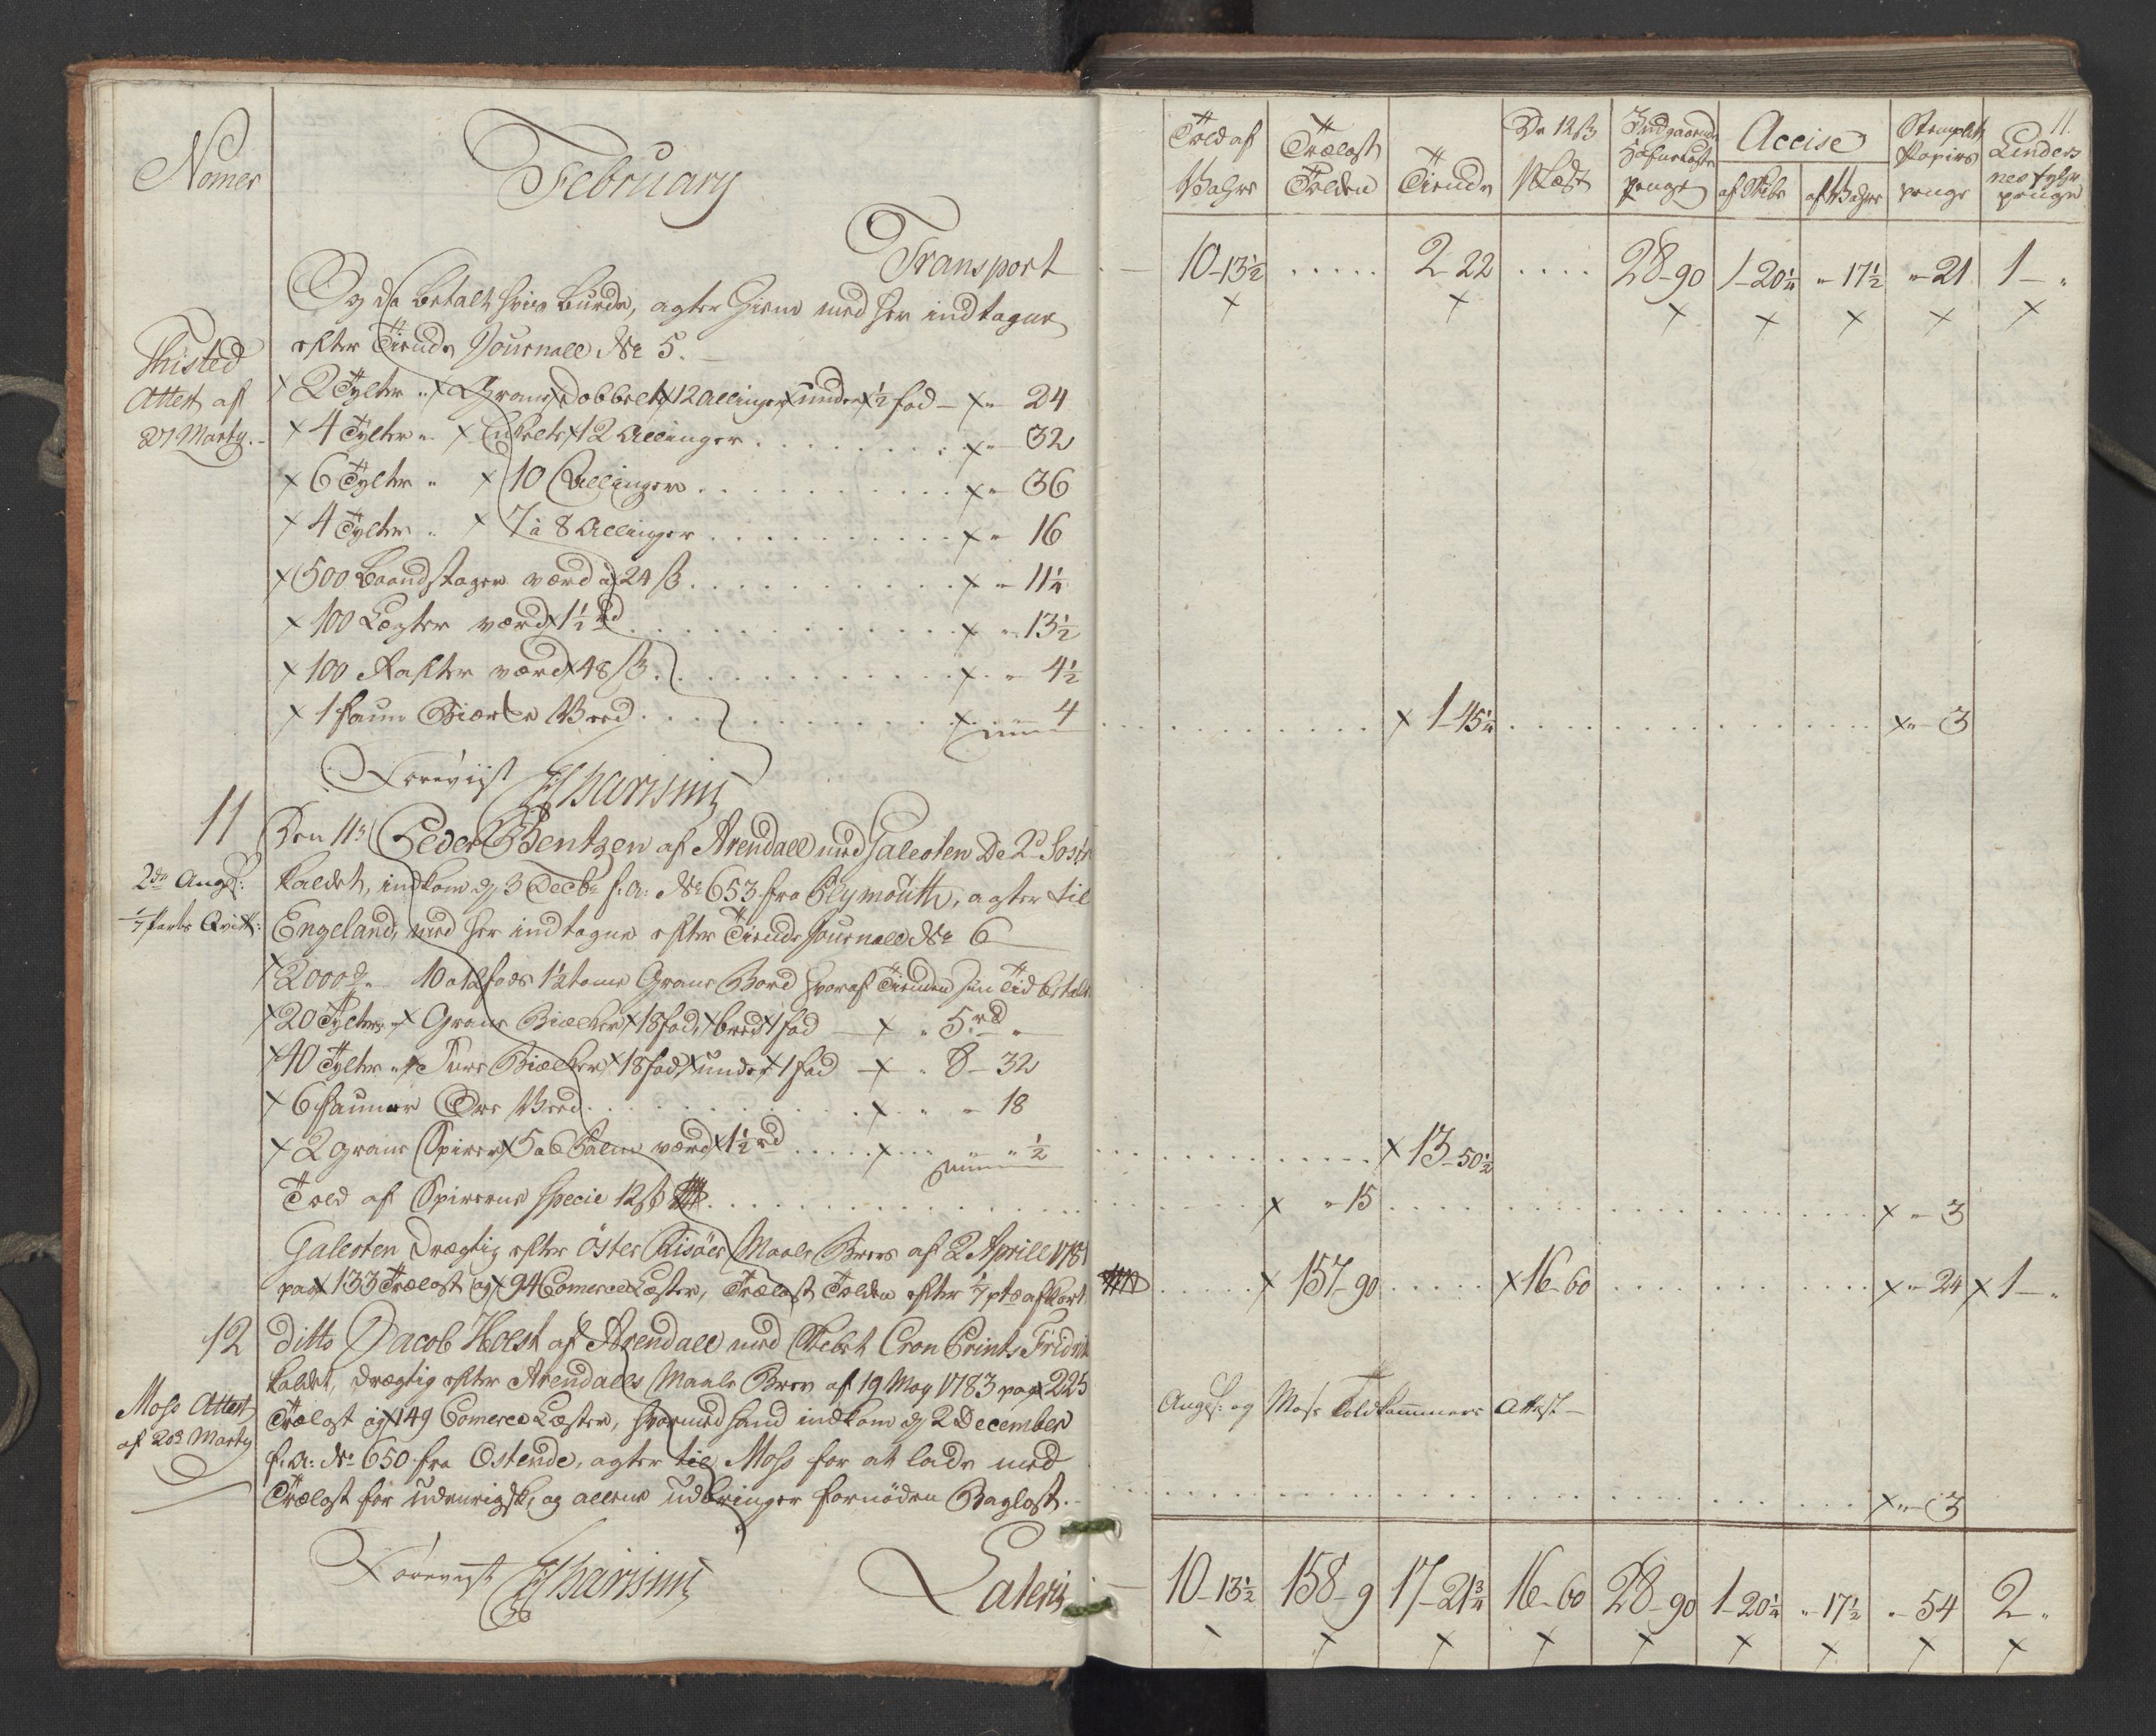 Nomer
February
Transport
Og da betalt hvis burde, agter hiem med her indtagne
efter Tiende Journall No 5.
Thisted
Attest af
27 Marty.
2 Tylter " Grane dobbelt 12 Allinger under ½ fod - " 24
4 Tylter " Enkelt 12 Allinger . . . " 32
6 Tylter " 10 Allinger . . . " 36
4 Tylter " 7 à 8 Allinger . . . " 16
500 Baandstager værd à 24 ß . . . " 11¼
100 Lægter værd 1½ rd . . . " 13½
100 Rafter værd 48 ß . . . " 4½
1 faun Biærke Veed . . . " 4
Foreviist
11
Den 11te Peder Bentzen af Arendall med Galeoten De 2de
kaldet, indkom d 3 Decbr f: a: No 653 fra Plymouth, agter til
Engeland, med her indtagne efter Tiende Journall No 6
2de Angl:
1/7 parts Qvitt:
2000d " 10 a 12 fods 1½ toms Grane Bord hvoraf Tienden sin Tid betalt
20 Tylter " Grane Bielker 18 fod, bred 1 fod - " 5 rd "
40 Tylter " Fure Bielker 18 fod, under 1 fod - " 8 - 32
6 faunner Ore Veed . . . " 18
2 grane Spirer 5 a 6 Palm værd 1½ rd . . . " " ½
Told af Spirerne Specie 12 ß
Galeoten drægtig efter Öster Risöer Maale Brev af 2 Aprill 1781
paa 133 Trælast og 94 Comerce Læster, Trælast Tolden efter 1/7 pts afkort
12
ditto Jacob Holst af Arendall med Skibet Cron Prints Fridrik
kaldet, drægtig efter Arendalls Maale Brev af 19 May 1783 paa 225
Trælast og 149 Comerce Læster, hvormed hand indkom d 2 December
f: a: No 650 fra Ostende, agter til Moss for at lade med
Trælast for udenrigsk, og allene udbringer fornöden Baglast.
Moss Attest
af 20de Marty
Foreviist
Lateris
11.
Told af Vahre
Trælast Tolden
Tiende
De 12 ß Pr Læst
Indgaaende penge
Accise
af Skibe
af Vahre
Stemplet Papirs penge
penge
10-13½ ..... 2-22 .... 28-90 1-20¼ "-17½ "-21 1-"
1-45¼ "-3
13-50½
"-15 "-3
157-90 16-60 "-24 1-"
Angl: og Moss Toldkammers Attest -
"-3
10-13½ 158-9 17-21¾ 16-60 28-90 1-20¼ "-17½ "-54 2 "